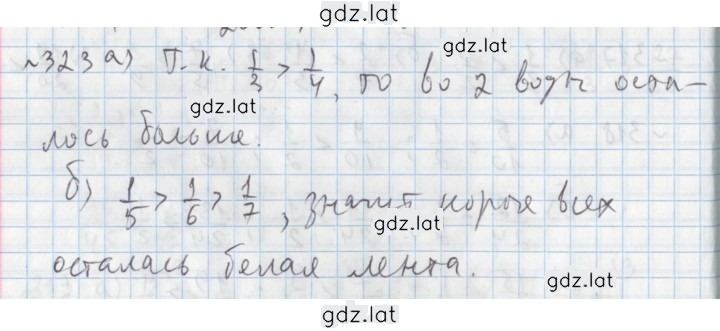 gdz.lat
№323 а) Т.к. 1/3 > 1/4, то во 2 воды оста-
gdz.lat
лось больше.
gdz.lat
б) 1/5 > 1/6 > 1/7, значит короче всех
gdz.lat
осталась белая лента.
gdz.lat
gdz.lat